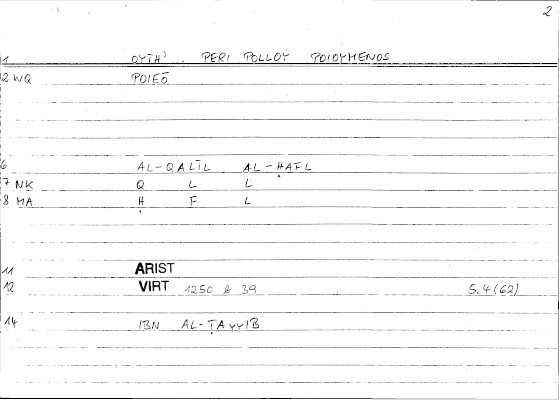 2
1 OYTH' PERI POLLOŸ POIOYMENOS
2 WQ POIEŌ
6 AL-QALĪL AL-ḤAFL
7 NK Q L L
8 MA Ḥ F L
11 ARIST
12 VIRT 1250 b 39 5.4 (62)
14 IBN AL-ṬAYYIB